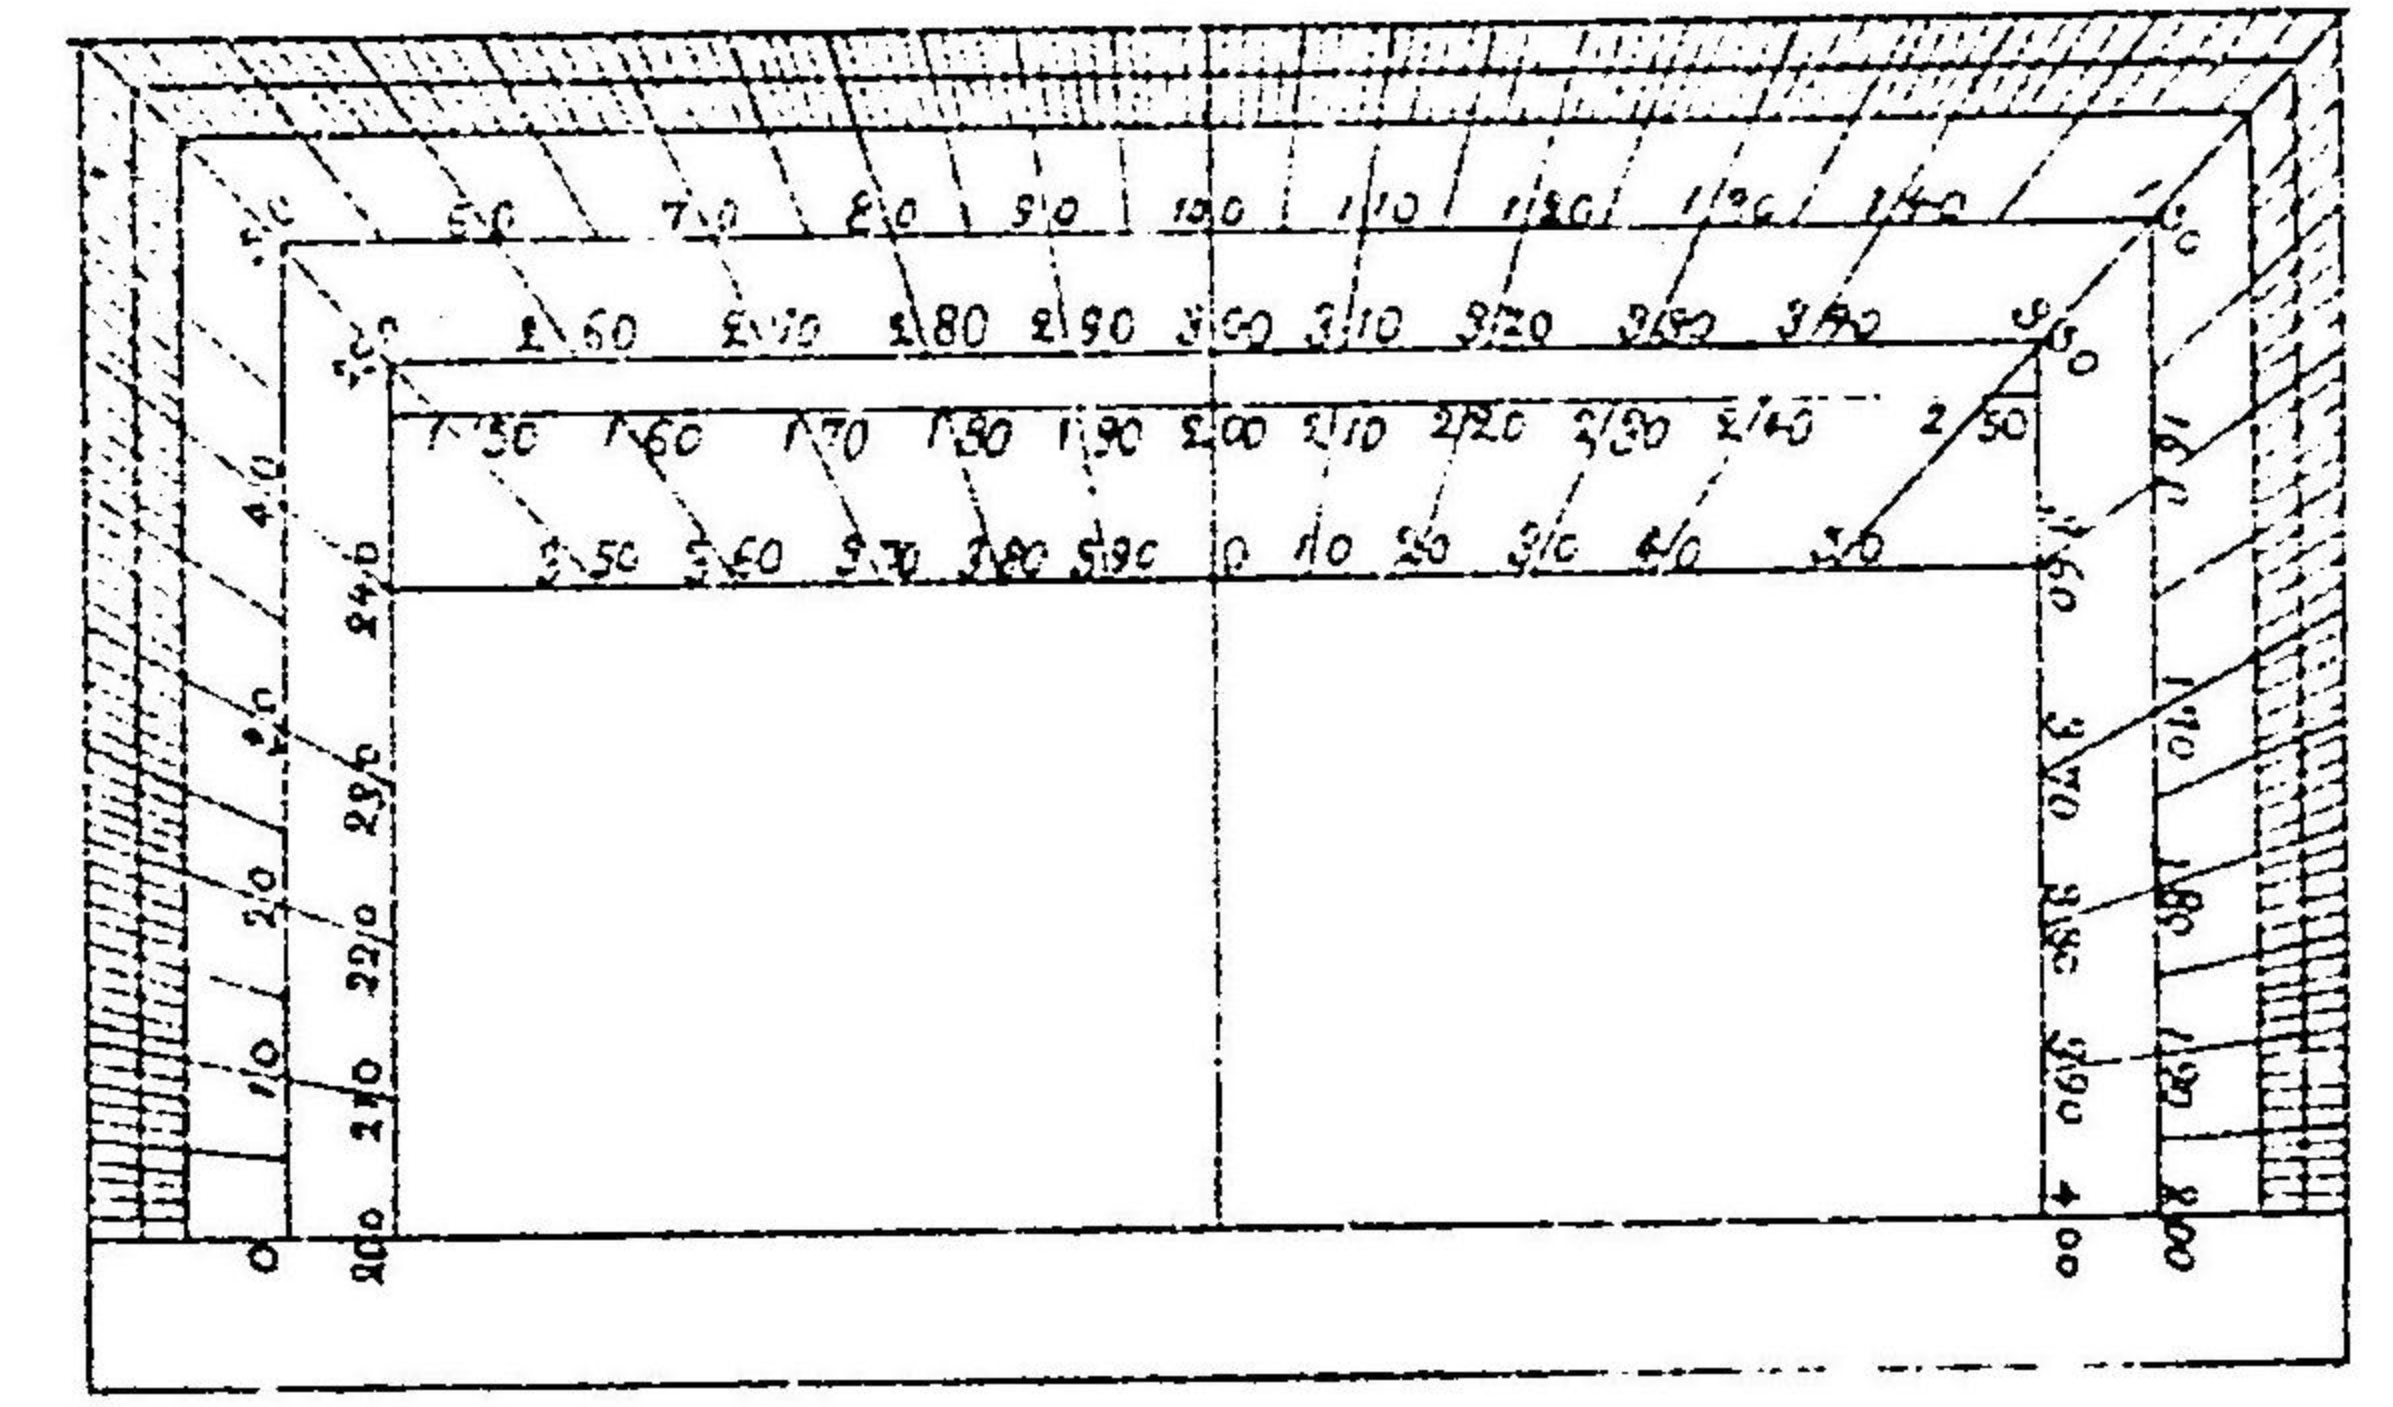 50 60 70 80 90 100 110 120 130 140 150
250 260 270 280 290 300 310 320 330 340 350
150 160 170 180 190 200 210 220 230 240 250
350 360 370 380 390 0 10 20 30 40 50
40
20
10
0
240
230
220
210
200
160
170
180
190
200
360
370
380
390
400